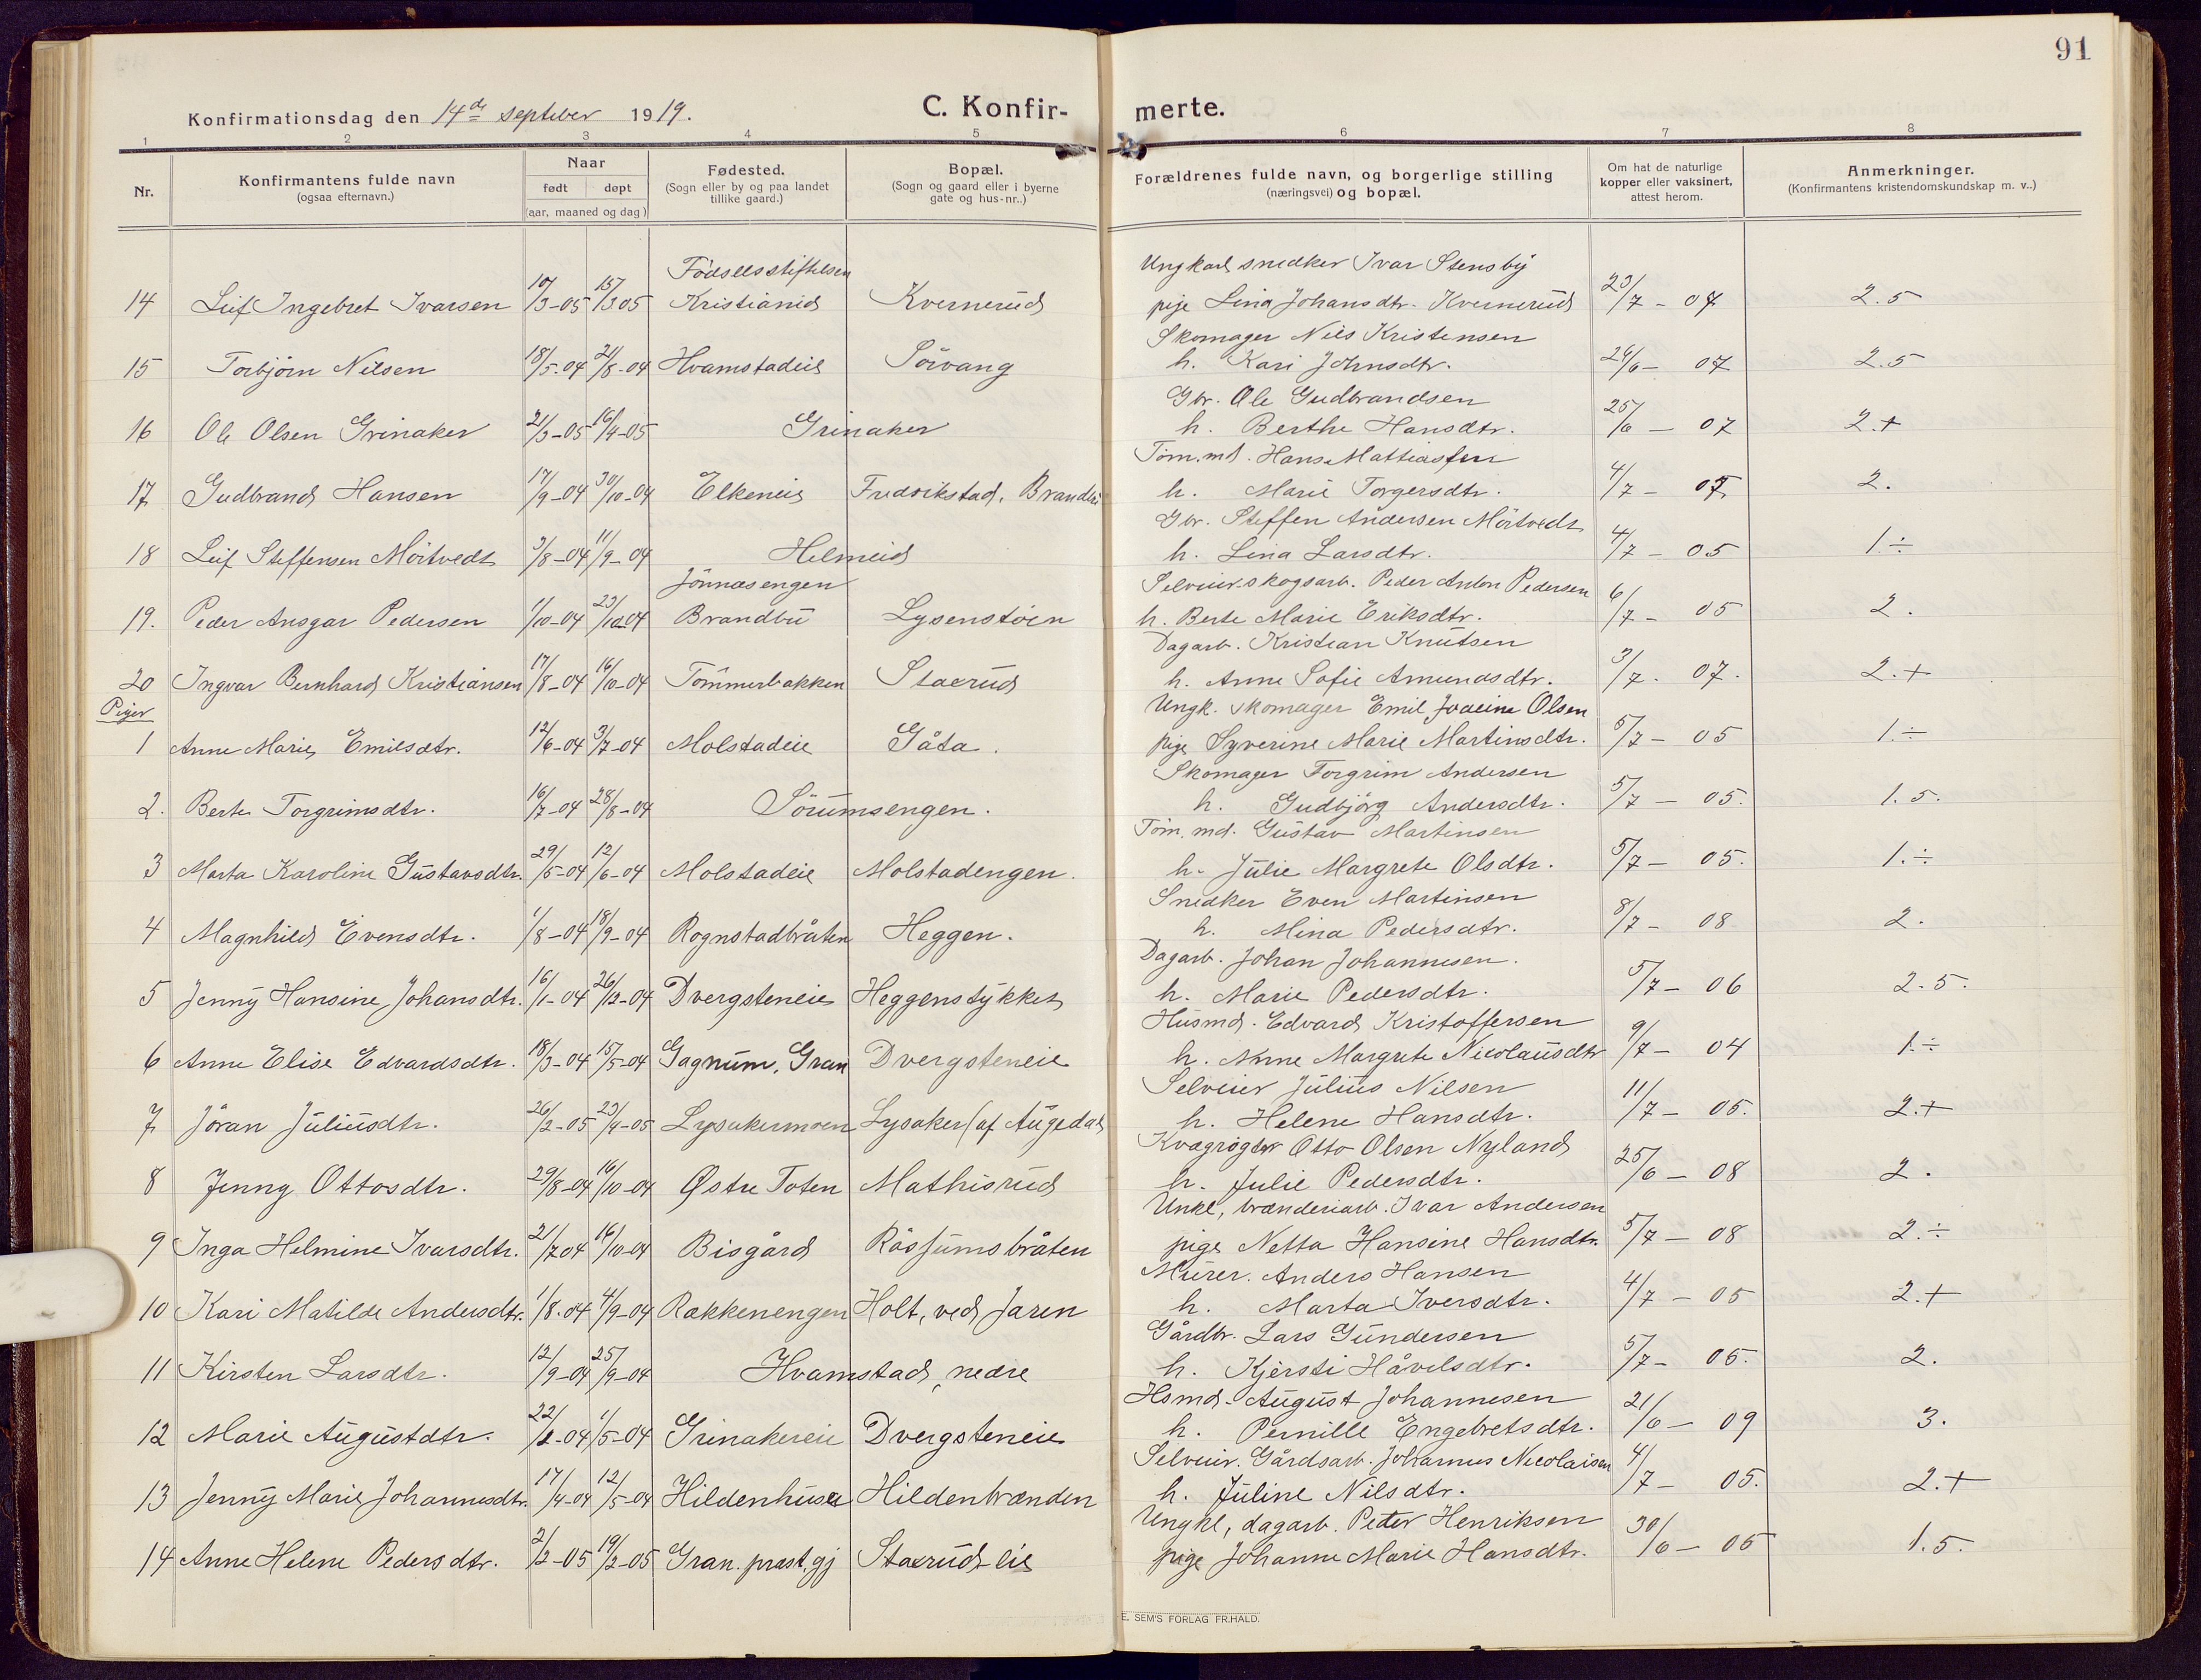 91
Konfirmationsdag den 14de september 1919.
C. Konfir- merte.
1 2 3 4 5 6 7 8
Nr.
Konfirmantens fulde navn
(ogsaa efternavn.)
Naar
født døpt
(aar, maaned og dag)
Fødested.
(Sogn eller by og paa landet
tillike gaard.)
Bopæl.
(Sogn og gaard eller i byerne
gate og hus-nr..)
Forældrenes fulde navn, og borgerlige stilling
(næringsvei) og bopæl.
Om hat de naturlige
kopper eller vaksinert,
attest herom.
Anmerkninger.
(Konfirmantens kristendomskundskap m. v..)
Födselsstiftelsen Ungkarl snedker Ivar Stensby
14 Leif Ingebret Ivarsen 10/3-05 15/3 05 Kristiania Kvernerud pige Lina Johansdtr. Kvernerud 23/7 - 07 2.5
Skomager Nils Kristensen
15 Torbjörn Nilsen 18/5-04 21/8-04 Hvamstadeie Sörvang h. Kari Johnsdtr. 24/6 - 07 2.5
Gbr. Ole Gudbrandsen
16 Ole Olsen Grinaker 21/3-05 16/4-05 Grinaker h. Berthe Hansdtr. 25/6 - 07 2.+
Töm.md. Hans Mattiassen
17 Gudbrand Hansen 17/9-04 30/10-04 Elkeneie Fredrikstad, Branderi h. Marie Torgersdtr. 4/7 - 2.
Gbr. Steffen Andersen Mörtvedt
18 Leif Steffensen Mörtvedt 3/8-04 11/9-04 Helmeid h. Lina Larsdtr. 4/7 - 05 1.÷
Jönnasengen Selveier skogsarb. Peder Anton Pedersen
19. Peder Ansgar Pedersen 1/10-04 23/10-04 Brandbu Lysenstöen h. Berte Marie Eriksdtr. 6/7 - 05 2.
Dagarb. Kristian Knutsen
20 Ingvar Bernhard Kristiansen 17/8-04 16/10-04 Tömmerbakken Staxrud h. Anne Sofie Amundsdtr. 3/7. 07. 2.+
Piger
Ungk. skomager Emil Olsen
1 Anne Marie Emilsdtr. 12/6-04 3/7-04 Molstadeie Gåta. pige Syverine Marie Martinsdtr. 5/7 - 05 1.÷
Skomager Torgrim Andersen
2. Berte Torgrimsdtr. 16/7-04 28/8-04 Sörumsengen. h. Gudbjörg Andersdtr. 5/7 - 05. 1.5.
Töm. md. Gustav Martinsen
3 Marta Karoline Gustavsdtr. 29/5-04 12/6-04 Molstadeie Molstadengen. h. Julie Margrete Olsdtr. 5/7 - 05. 1.÷
Snedker Even Martinsen
4 Magnhild Evensdtr. 1/8-04 18/9-04 Rognstadbråten Heggen. h. Mina Pedersdtr. 8/7 - 08 2.
Dagarb. Johan Johannesen.
5 Jenny Hansine Johansdtr. 16/1-04 26/3-04 Dvergsteneie Heggenstykket h. Marie Pedersdtr. 5/7 - 06 2.5.
Husmd. Edvard Kristoffersen
6 Anne Elise Edvardsdtr. 18/3-04 15/5-04 Gagnum, Gran Dvergsteneie h. Anne Margrete Nicolausdtr 9/7 - 04 1.÷
Selveier Julius Nilsen
7 Jöran Juliusdtr. 26/2-05 23/4-05 Lysakermoen Lysaker (af Augedal h. Helene Hansdtr. 11/7 - 05. 2.+
Kvægrögter Otto Olsen Nyland
8 Jenny Ottosdtr. 29/8-04 16/10-04 Østre Toten Mathisrud h. Julie Pedersdtr. 25/6 - 08 2.
Unkl, brænderiarb. Ivar Andersen
9 Inga Helmine Ivarsdtr. 21/7 04 16/10-04 Bisgård Råssumsbråten pige Netta Hansine Hansdtr. 5/7 - 08 2.÷
Murer. Anders Hansen
10 Kari Matilde Andersdtr. 1/8-04 4/9-04 Rakkenengen Holt, ved Jaren h. Marta Iversdtr. 4/7 - 05 2.+
Gårdbr. Lars Gundersen
11 Kirsten Larsdtr. 12/9-04 25/9-04 Hvamstad, nedre h. Kjersti Håvelsdtr. 5/7 - 05. 2.
Hsmd. August Johannesen
12 Marie Augustdtr. 22/-04 1/5-04 Grinakereie Dvergsteneie h. Pernille Engebretsdtr. 21/6 - 09 3.
Selveier. Gårdsarb. Johannes Nicolaisen
13 Jenny Marie Johannesdtr. 17/4-04 12/5-04 Hildenhusa Hildenbrænden h. Juline Nilsdtr. 4/7 - 05. 2.+
Ungkl, dagarb. Peter Henriksen
14 Anne Helene Pedersdtr. 2/2-05 19/2-05 Gran. prast.gj Staxrud-eie pige Johanne Marie Hansdtr. 30/6 - 05 1.5.
E. SEM'S FORLAG FR.HALD.